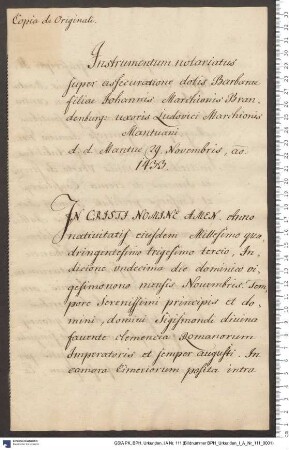 Copia de Originali.
Instrumentum notariatus
super assecuratione dotis Barbarae
filiae Johannis Marchionis Bran
denburg: uxoris Ludovici Marchionis
Mantuani
d. d. Mantue, 29. Novembris, ao.
1433.
IN CRISTI NOMINE AMEN. Anno
nativitatis eiusdem Millesimo qua
dringentesimo trigesimo tercio, In
dicione undecima die dominico vi
gesimonono mensis Nouembris. Tem
pore Serenissimi principis et do
mini, domini Sigismondi diuina
fauente clemencia Romanorum
Imperatoris et semper augusti. In
camara Cimeriorum posita intra
GStA PK, BPH, Urkunden, I A Nr. 111